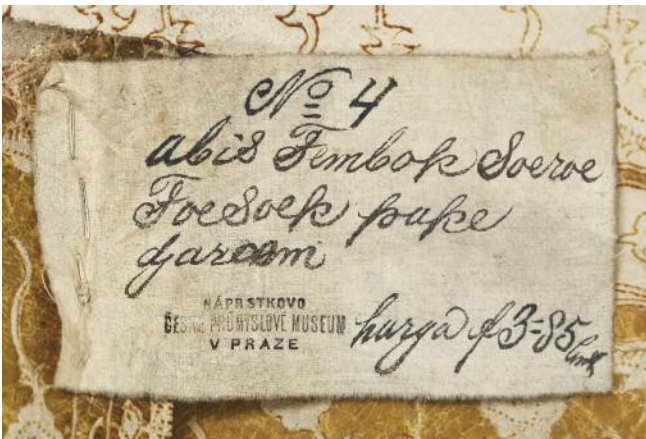 No 4
abis Tembok Soeroe
Toesoek pake
djaroem
NÁPRSTKOVO
ČESKÉ PRŮMYSLOVÉ MUSEUM
V PRAZE
harga f 3=85